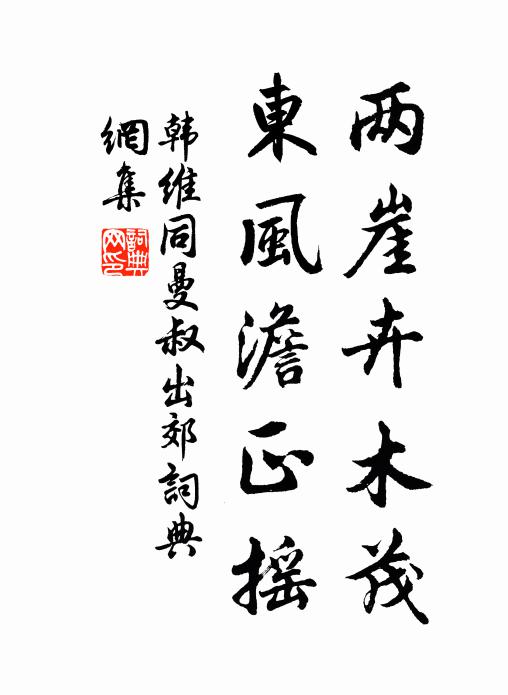 两崖卉木茂
東風澹正摇
韩維同曼叔出郊詞典
網集
詞典网印